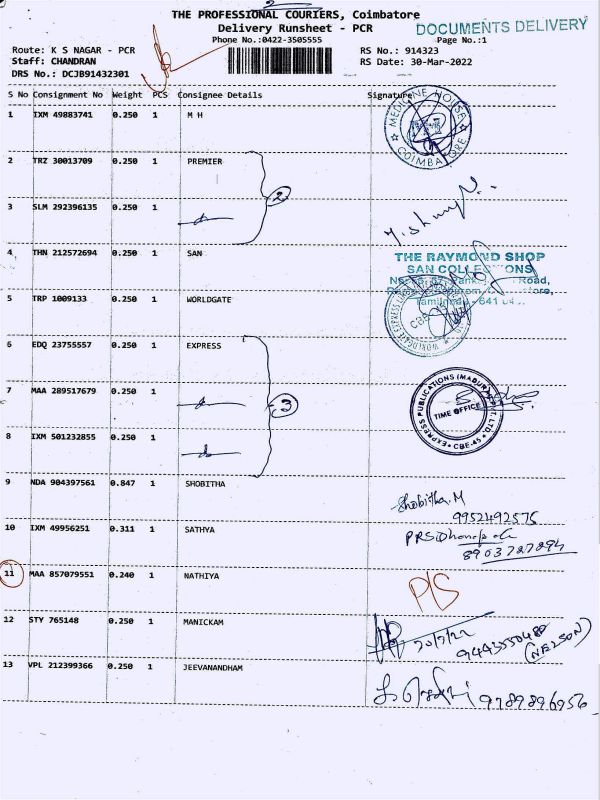 THE PROFESSIONAL COURIERS, Coimbatore
Delivery Runsheet - PCR
DOCUMENTS DELIVERY
Phone No.:0422-3505555
Page No.:1
Route: K S NAGAR - PCR
RS No.: 914323
Staff: CHANDRAN
RS Date: 30-Mar-2022
DRS No.: DCJB91432301
S No Consignment No Weight PCS Consignee Details Signature
1 IXM 49883741 0.250 1 M H
MEDICINE HOUSE
COIMBATORE
2 TRZ 30013709 0.250 1 PREMIER
2
3 SLM 292396135 0.250 1
4 THN 212572694 0.250 1 SAN
THE RAYMOND SHOP
SAN COLLECTIONS
Road,
Tamilnadu - 641
5 TRP 1009133 0.250 1 WORLDGATE
WORLDGATE EXPRESS
CBE
6 EDQ 23755557 0.250 1 EXPRESS
7 MAA 289517679 0.250 1
3
EXPRESS PUBLICATIONS (MADURAI) PVT. LTD.
TIME OFFICE
CBE-45
8 IXM 501232855 0.250 1
9 NDA 904397561 0.847 1 SHOBITHA
Shobitha.M
9952492575
10 IXM 49956251 0.311 1 SATHYA
8903727294
11 MAA 857079551 0.240 1 NATHIYA
P/S
12 STY 765148 0.250 1 MANICKAM
(NELSON)
13 VPL 212399366 0.250 1 JEEVANANDHAM
9789896956